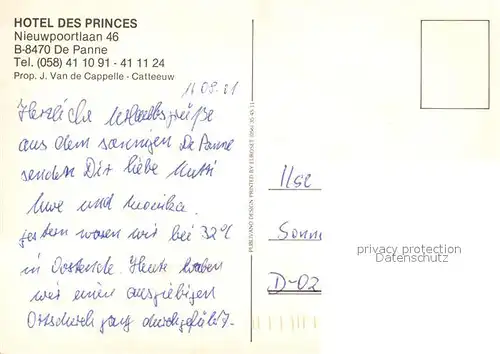 HOTEL DES PRINCES
Nieuwpoortlaan 46
B-8470 De Panne
Tel. (058) 41 10 91 - 41 11 24
Prop. J. Van de Cappelle - Catteeuw
11 08. 81
Herzliche Urlaubsgrüße
aus dem sonnigen De Panne
senden Dir liebe Mutti
Uwe und Monika.
gestern waren wir bei 32°C
in Oostende. Heute haben
wir einen ausgiebigen
Ortsdurchgang durchgeführt.
PUBLIVANO DESIGN PRINTED BY EUROSET
Ilse
Sonn
D-02
privacy protection
Datenschutz